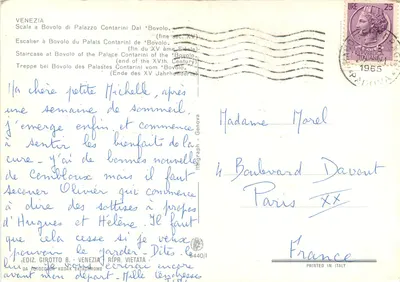 VENEZIA
Scala a Bovolo di Palazzo Contarini Dal "Bovolo"
(fine sec. XV)
Escalier à Bovolo du Palais Contarini de "Bovolo"
(fin du XV ème Siècle)
Staircase at Bovolo of the Palace Contarini of the "Bovolo"
(end of the XVth. Century)
Treppe bei Bovolo des Palastes Contarini vom "Bovolo"
(Ende des XV Jahrhunderts)
25
1965
Ma chère petite Michelle, après
une semaine de sommeil
j'émerge enfin et commence
à sentir les bienfaits de la
cure - J'ai de bonnes nouvelles
de Combloux mais il faut
secouer Olivier qui commence
à dire des sottises à propos
d'Hugues et Hélène. Il faut
que cela cesse si je veux
pouvoir le garder - Dites-le
lui - Je vous écrirai encore
avant mon départ - Mille tendresses
Madame Morel
4 Boulevard Davout
Paris XX
France
EDIZ. GIROTTO B. - VENEZIA - RIPR. VIETATA
PRINTED IN ITALY